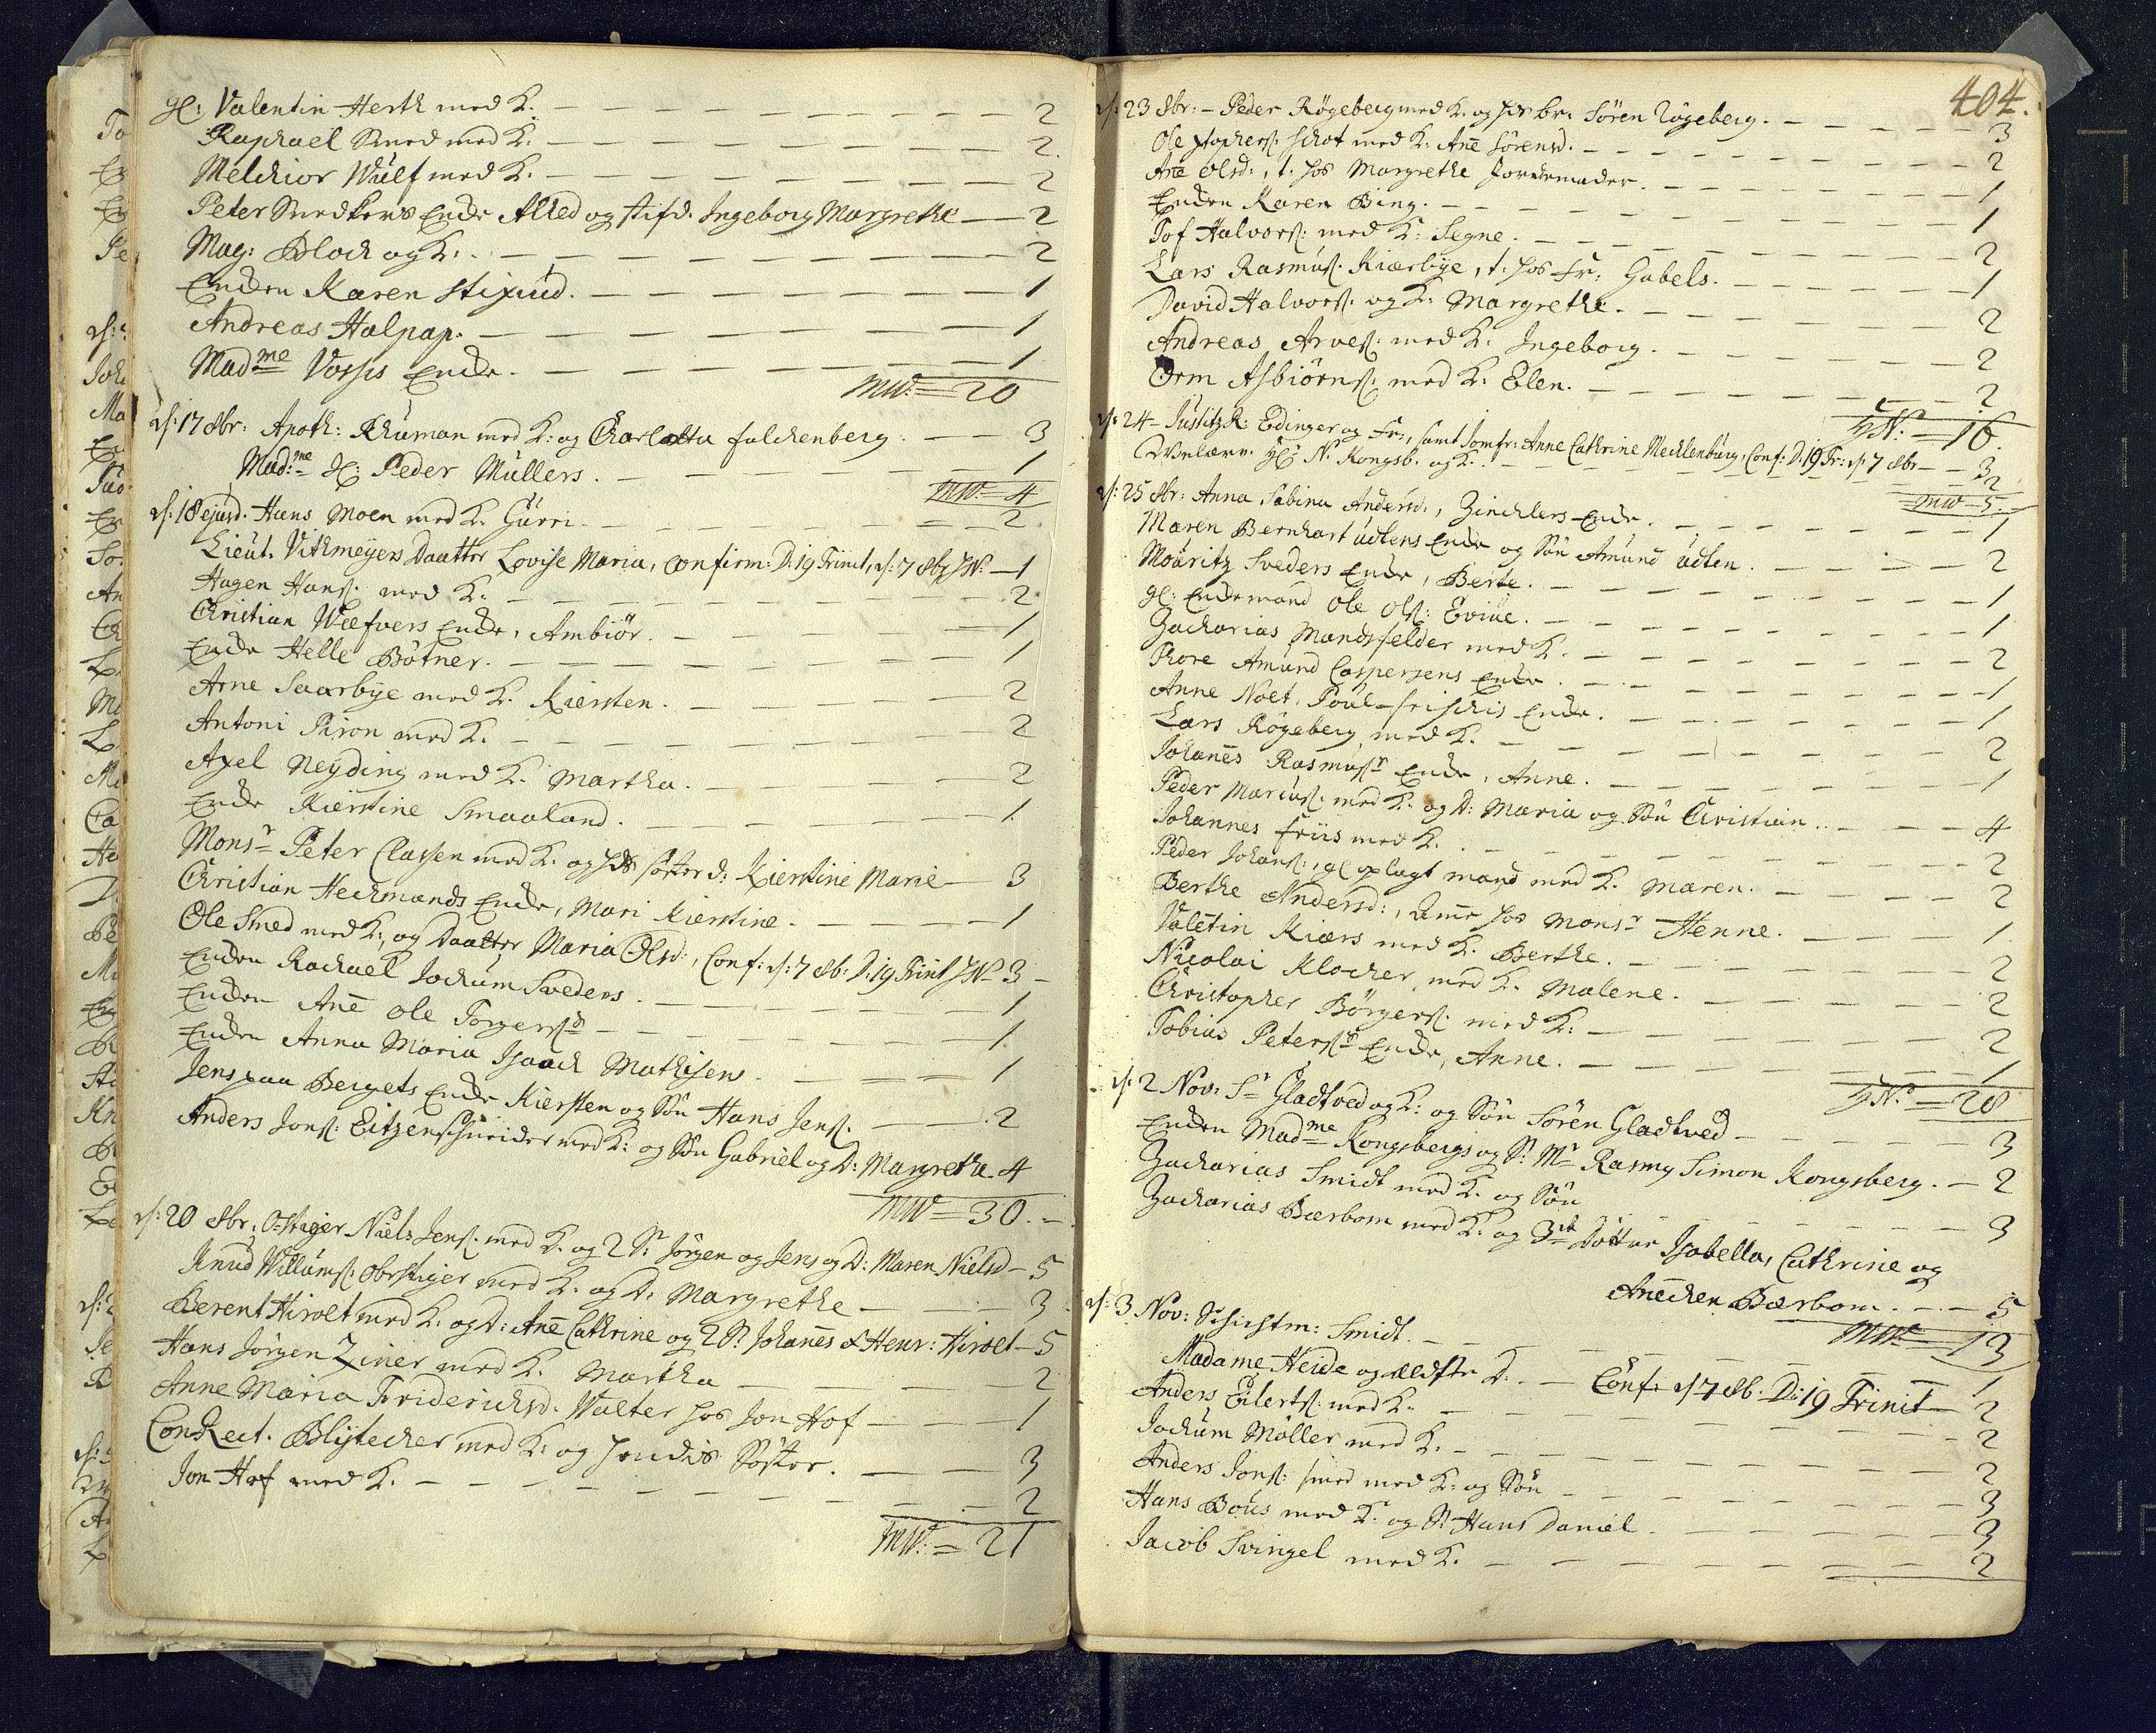 gl: Valentin Herth med K. 2
Raphael Smed med K. 2.
Melchior Wulf med K. 2
Peter Smedkens Enche Alhed og stifd. Ingeborg Margrethe 2
Mag: Bloch og K. 2
Enchen Karen Stixrud. 1
Andreas Halpap. 1
Mad.me Vosses Enche. 1
20
d: 17 8br: Apoth: Schuman med K: og Charlotta Falchenberg. 3
Mad:me Sl: Peder Müllers. 1
4
d: 18 ejusd. Hans Moen med K. Gurri. 2.
Lieut. Vithmeyers Daatter Lovise Maria, Confirm: D. 19 Trinit, d: 7 8br 1
Hagen Hans. med K. 2
Christian Wæfvers Enche, Ambiør. 1
Enche Helle Bøtner. 1
Arne Saarbye med K. Kiersten. 2
Antoni Piron med K. 2
Axel Neyding med K. Martha. 2
Enche Kierstine Smaaland. 1
Monsr Peter Classen med K. og Søster d: Kierstine Marie 3
Christian Heckmands Enche, Mari Kierstine. 1
Ole Smed med K., og Daatter Maria Olsd:, Conf: d: 7 8b: D. 19 Trinit 3
Enchen Rachael Jochum Sveders. 1
Enchen Anne Ole Torgers. 1
Enchen Anna Maria Isaach Mathisens. 1
Jens paa Bergets Enche Kiersten og Søn Hans Jens. 2
Anders Jons: Eitzenschneider med K: og Søn Gabriel og D: Margrethe. 4
30.
d: 20 8br: O-stiger Niels Jens. med K. og 2 S: Jørgen og Jens og D: Maren Nielsd 5
Knud Willums. oberstiger med K. og D. Margrethe 3
Berent Hirolt med K. og D: Anne Cathrine og 2 S: Johannes & Henr: Hirolt 5
Hans Jørgen Ziner med K. Martha 2
Anne Maria Friderichsd. Walter hos Jon Hof 1
ConRect. Blytecher med K: og Søster. 3
Jon Hof med K. 2
21
404.
d: 23 8br: Peder Røgeberg med K. og br: Søren Røgeberg. 3
Ole Stophers: Schot med K. Anne Sørensd. 2
Anne Olsd:, t. hos Margrethe Jordemoder. 1
Enchen Karen Bing. 1
Tof Halvors: med K: Segne. 2
Lars Rasmus. Kiærbye, t: hos Fr: Gabels. 1
David Halvors: og K: Margrethe. 2
Andreas Arves: med K. Ingeborg. 2
Orm Asbiørns: med K: Elen. 2
16
d: 24 Justitz R: Edinger og Fr:, samt Jomfr: Anne Cathrine Mechlenburg, Conf: D. 19 Tr: d: 7 8br 3
N. Kongsb. og K. 2
5.
d: 25 8br: Anna Sabina Andersd:, Zinchlers Enche. 1
Maren Bernhart Udtens Enche og Søn Amund Udten. 2
Mouritz Sveders Enche, Berte. 1
gl: Enchemand Ole Ols: Eviue. 1
Zacharias Mandsfelder med K. 2
Thore Amund Caspersens Enche. 1
Anne Noet, Poul Enche. 1
Lars Røgeberg med K. 2
Johannes Rasmus Enche, Anne. 1
Peder Marcus: med K. og D: Maria og Søn Christian.. 4
Johannes Friis med K. 2
Peder Johans:, gl oplagt mand med K. Maren. 2
Berthe Andersd:, Amme hos Monsr Henne. 1
Valetin Kiærs med K. Berthe. 2
Nicolai Klocher, med K. Malene. 2
Christopher Børgers. med K. 2
Tobias Peters Enche, Anne. 1
28
d: 2 Nov: Sr Gladtved og K: og Søn Søren Gladtved 3
Enchen Mad.me Kongsbergs og S: Mr Rasmus Simon Kongsberg. 2
Zacharias Smidt med K. og Søn 3
Zacharias Bærbom med K. og 3 Døttre Isabella, Cathrine og
Annechen Bærbom. 5
13
d: 3 Nov: Schichtm: Smidt. 1
Madame Heide og ældste D. Conf. d 7 8b. D: 19 Trinit 2
Anders Eilerts. med K. 2
Jochum Møller med K. 2
Anders Jons: smed med K. og Søn 3
Hans Bous med K. og S: Hans Daniel. 3
Jacob Svingel med K. 2